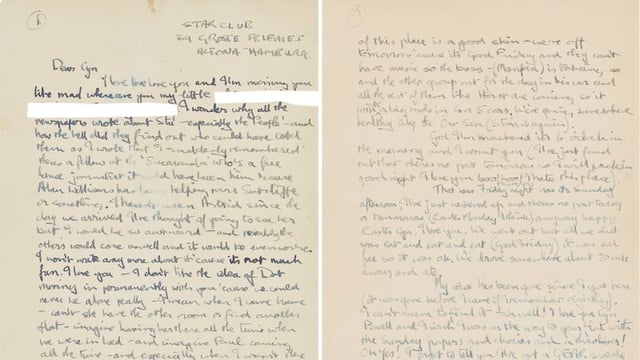 STAR CLUB
39 GROSSE FREIHEIT
ALTONA HAMBURG.
Dear Cyn
I love love love you and I'm missing you
like mad where are you my little
I wonder why all the
newspapers wrote about Stu - especially the 'People' - and
how the hell did they find out who could have told
them as I wrote that I suddenly remembered
theres a fellow at the 'Jacaranda' who's a free
lance journalist it could have been him because
Allan Williams has been helping Mrs Sutcliffe
or something. I haven't seen Astrid since the
day we arrived I've thought of going to see her
but I would be so awkward - and probably the
others would come as well and it would be even worse.
I won't write any more about it 'cause it's not much
fun. I love you - I don't like the idea of Dot
moving in permanently with you 'cause we could
never be alone really - I mean when I come home
- can't she have the other room or find another
flat - imagine having her there all the time when
we were in bed - and imagine Paul coming
all the time - and especially when I wasn't there
of this place is a good skin - we're off
tomorrow 'cause it's Good Friday and they can't
have music so the boss (Manfred) is taking us
and the other group out for the day in his car and
all the rest of them like Horst are coming, so it
will be big mob in cars We're going somewhere
healthy like the Ost Sea
God I'm knackered it's 6 o'clock
in the morning and I want you (I've just found
out that there's no post tomorrow so I will pack in
good night I love you boo hoo I hate this place)
That was Friday night now its Sunday
afternoon I've just waked up and theres no post today
or tomorrow (Easter Monday I think) anyway happy
Easter Cyn. I love you, We went out but all we did
was eat and eat and eat (Good Friday) it was all
free so it was ok. We drove somewhere about 30 miles
away and ate.
My voice has been gone since I got here
(it was gone before I came if I remember rightly).
I can't seem to find it - oh well! I love you Cyn
Powell and I wish I was on the way to your flat with
the Sunday papers and chocs and a throbber!
Oh Yes! I forgot to tell you I've got a GEAR suede